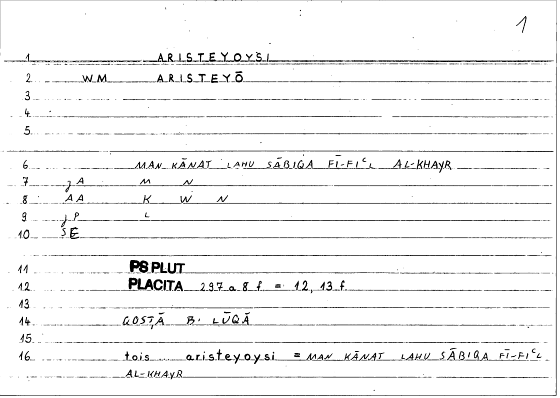 1
1 ARISTEYOYSI
2 WM ARISTEYŌ
3
4
5
6 MAN KĀNAT LAHU SĀBIQA FĪ-FIᶜL AL-KHAYR
7 jA M N
8 AA K W N
9 jP L
10 SE
11 PS PLUT
12 PLACITA 297 a 8 f = 12, 13 f
13
14 QOSṬĀ B. LŪQĀ
15
16 tois aristeyoysi = MAN KĀNAT LAHU SĀBIQA FĪ-FIᶜL
AL-KHAYR